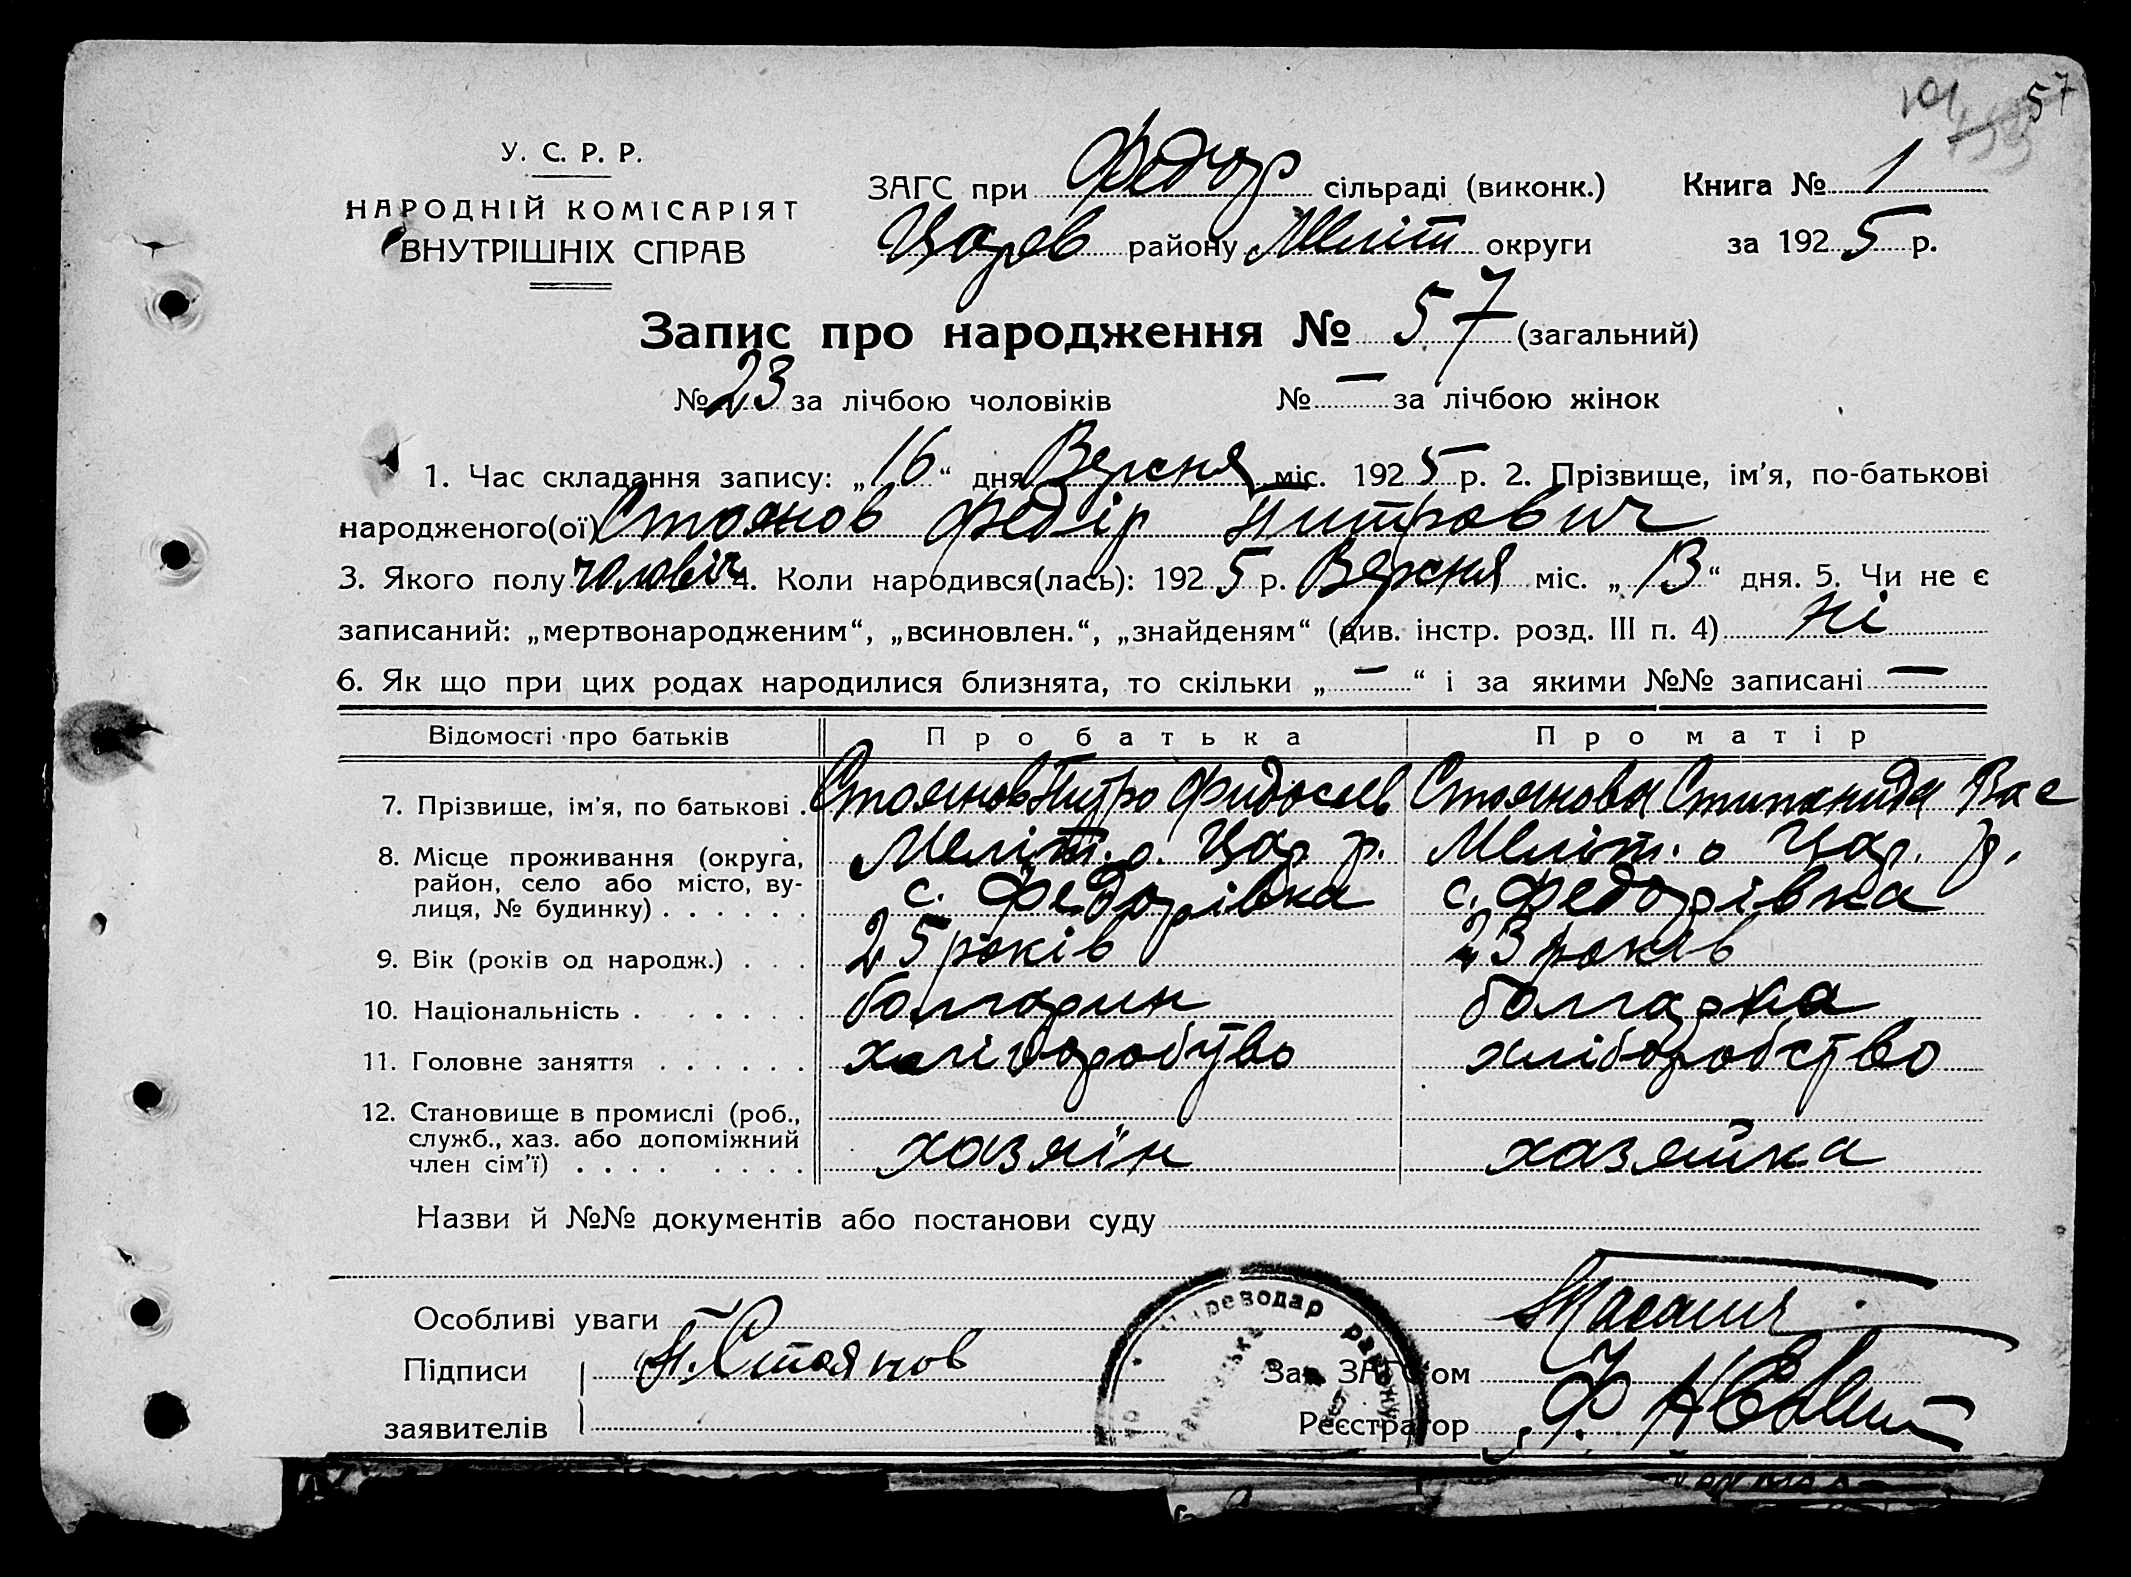 57
У. С. Р. Р.
НАРОДНІЙ КОМІСАРІЯТ
ВНУТРІШНІХ СПРАВ
ЗАГС при Федор сільраді (виконк.) Книга № 1
Царев району Меліт округи за 1925 р.
Запис про народження № 57 (загальний)
№ 23 за лічбою чоловіків № — за лічбою жінок
1. Час складання запису: „16“ дня Версня міс. 1925 р. 2. Прізвище, ім’я, по-батькові
народженого(ої) Стоянов Федір Питрович
3. Якого полу чоловіч 4. Коли народився(лась): 1925 р. Версня міс. „13“ дня. 5. Чи не є
записаний: „мертвонародженим“, „всиновлен.“, „знайденям“ (див. інстр. розд. III п. 4) Ні
6. Як що при цих родах народилися близнята, то скільки „—“ і за якими №№ записані —
Відомості про батьків Про батька Про матір
7. Прізвище, ім’я, по батькові . Стоянов Питро Фидосіев Стоянова Стипанида Вас
8. Місце проживання (округа, Меліт. о. Цар. р. Меліт. о Цар. р.
район, село або місто, ву-
лиця, № будинку) . . . . . . с. Федорівка с. Федорівка
9. Вік (років од народж.) . . . 25 років 23 років
10. Національність . . . . . . болгарин болгарка
11. Головне заняття . . . . . . хліборобство хліборобство
12. Становище в промислі (роб.,
служб., хаз. або допоміжний
член сім’ї) . . . . . . . . хазяїн хазяйка
Назви й №№ документів або постанови суду
Особливі уваги
Підписи П. Стоянов Зав. ЗАГС’ом
заявителів Реєстратор